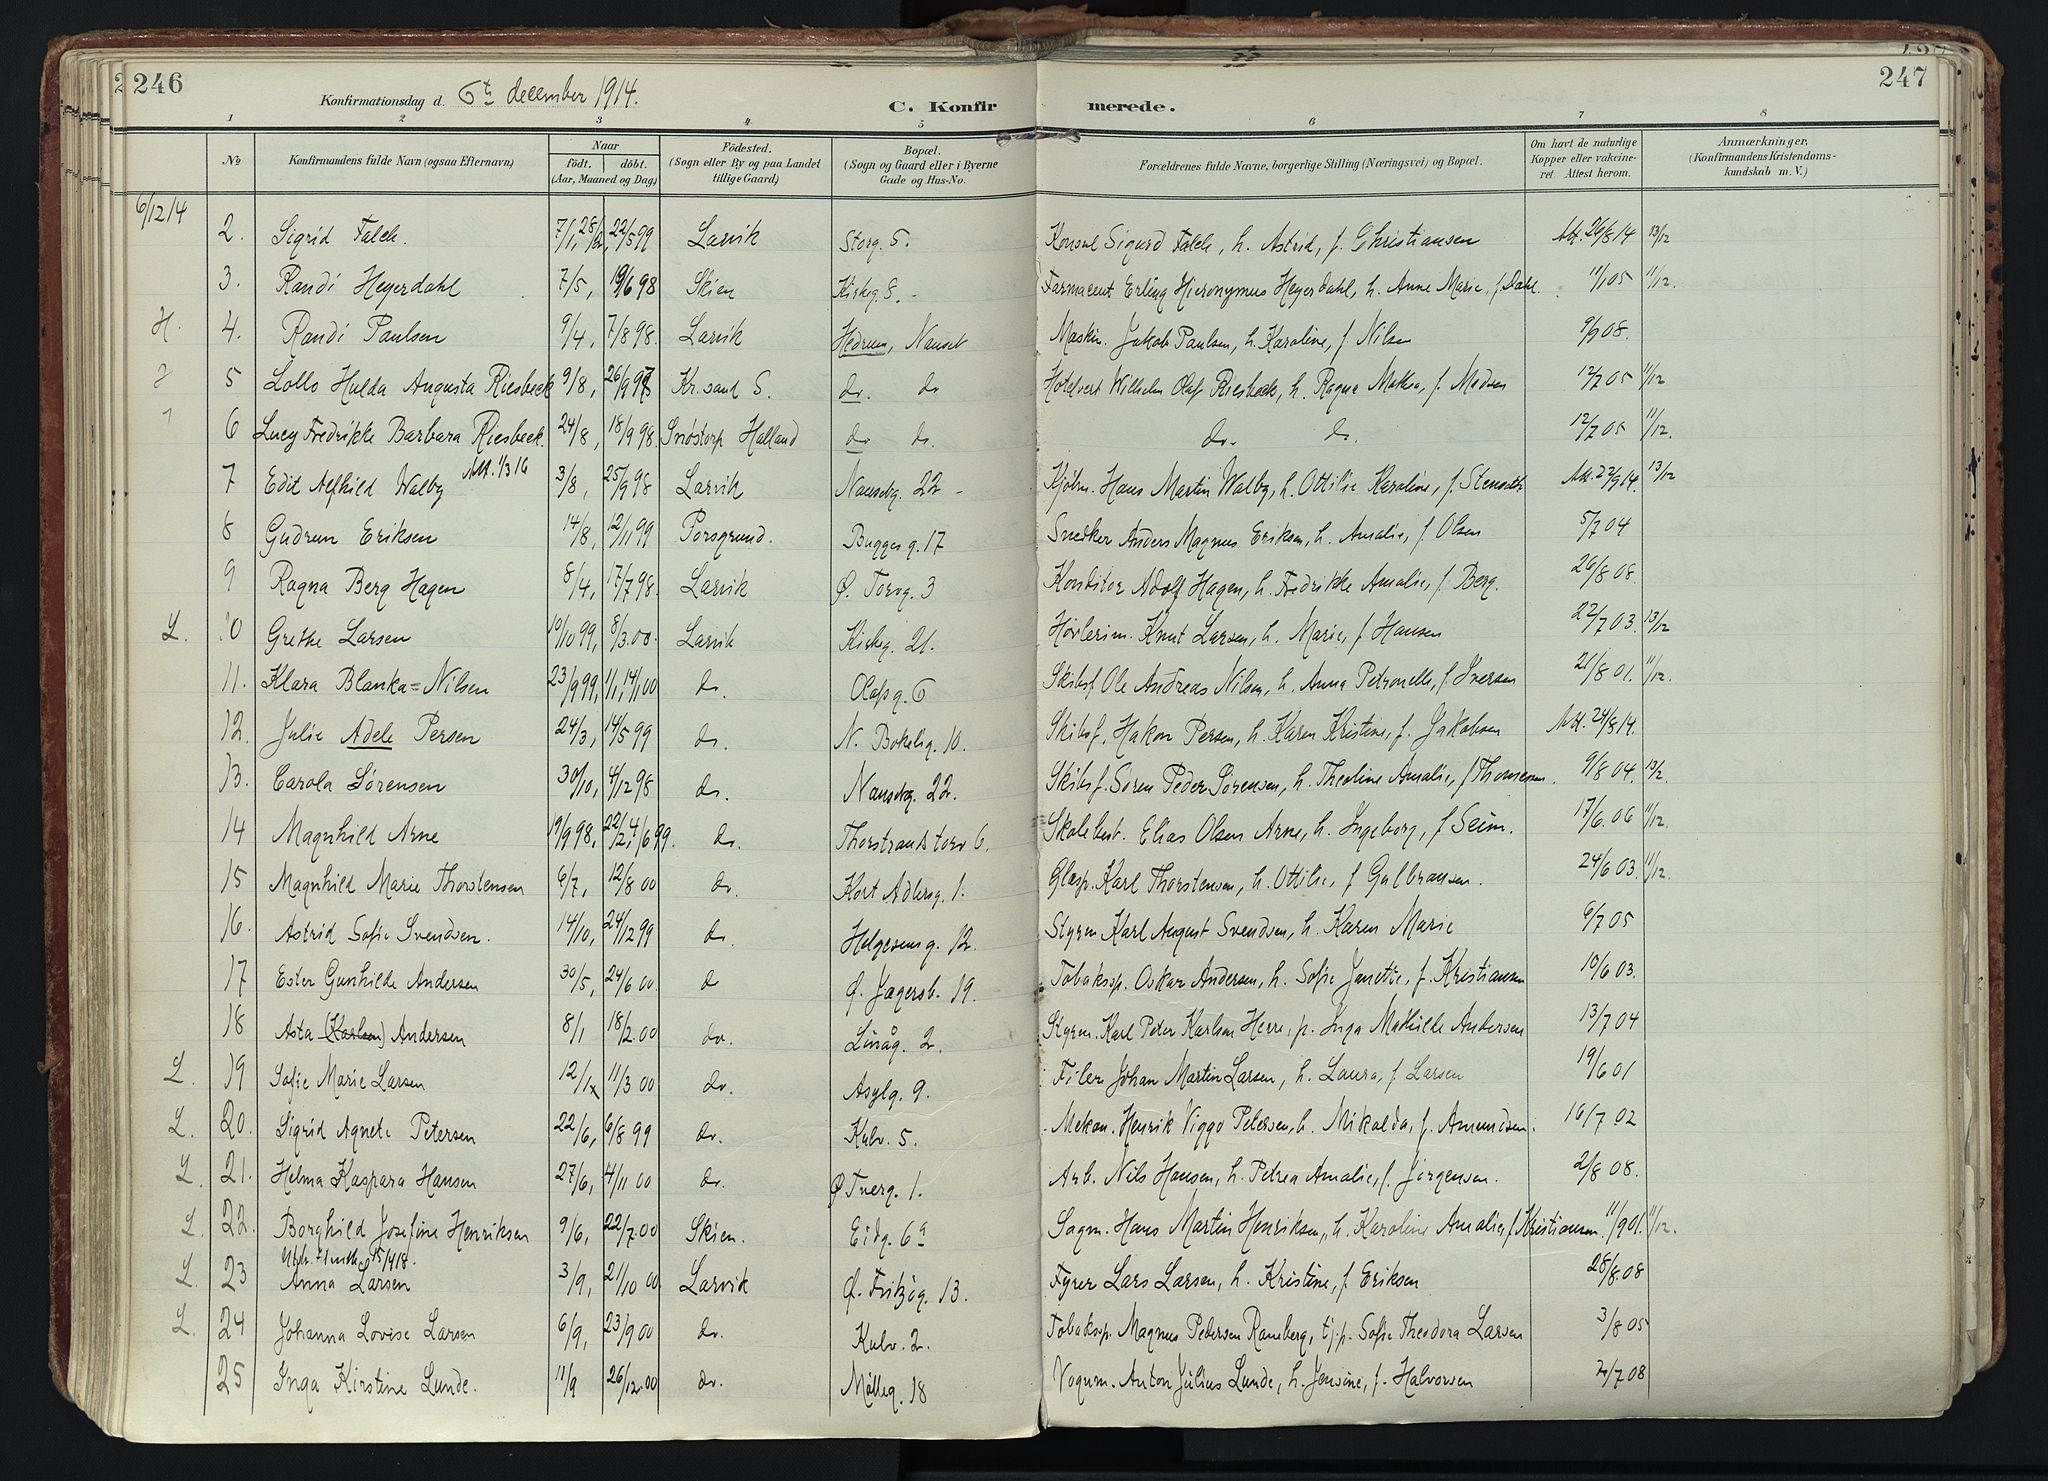 246
Konfirmationsdag d. 6te december 1914.
C. Konfirmerede.
247
1 2 3 4 5 6 7 8
No Konfirmandens fulde Navn (ogsaa Efternavn) Naar født. døbt. (Aar, Maaned og Dag) Fødested. (Sogn eller By og paa Landet tillige Gaard.) Bopæl. (Sogn og Gaard eller i Byerne Gade og Hus-No. Forældrenes fulde Navne, borgerlige Stilling (Næringsvei) og Bopæl. Om havt de naturlige Kopper eller vakcineret. Attest herom. Anmærkninger, (Konfirmandens Kristendomskundskab m. V.)
6/12 14
2. Sigrid Falck. 22/5 99 Larvik Storg. 5. Konsul Sigurd Falck, h. Astrid, f. Christiansen Att. 26/8 14 13/12
3. Randi Heyerdahl 7/5, 19/6 98 Skien Kirkeg. 8. Farmaceut Erling Hieronymus Heyerdahl, h. Anne Marie, f. Dahl. 11/12.
H. 4. Randi Paulsen 9/4, 7/8 98. Larvik Hedrum, Nanset Maskin. Jakob Paulsen, h. Karoline, f. Nilsen 9/9 08.
5 Lollo Hulda Augusta Riesbeck 9/8, Kr.sand S. do. do Wilhelm Olaf Riesbeck, h. Ragna f. Madsen 12/7 05 11/12
6 Lucy Fredrikke Barbara Riesbeck. 24/8, 18/9 98. Snöstorp Halland do do. do. do. 12/7 05 11/12.
7 Edit Alfhild Walby Att. 1/3 16 3/8, 25/9 98 Larvik Nansetg. 22 Kjølm. Hans Martin Walby, h. Ottilie Karoline, f. Att. 22/9 14. 13/12
8 Gudrun Eriksen 14/8, 12/11 99 Porsgrund. Bugges g. 17 Snedker Anders Magnus Eriksen, h. Amalie, f. Olsen 5/7 04
9 Ragna Berg Hagen 8/4, 17/7 98. Larvik Ø. Torvg. 3 Konditor Adolf Hagen, h. Fredrikke Amalie, f. Berg. 26/8 08.
L. 10 Grethe Larsen 10/10 99, 8/3.00. Larvik Kirkeg. 21. Høvlerim. Knut Larsen, h. Marie, f. Hansen 22/7 03. 13/12
11. Klara Blanka=Nilsen 23/9 99, do. Olafsg. 6 Skibsf. Ole Andreas Nilsen, h. Anna Petronelle, f. Iversen 21/8 01. 11/12.
12. Julie Adele Persen 24/3, 14/5 99 do. N. Bøkelig. 10. Skibsf. Hakon Persen, h. Karen Kristine, f. Jakobsen Att. 24/8 14.
13. Carola Sørensen 30/10, 4/12 98 do. Nansetg. 22. Skibsf. Sören Peder Sörensen, h. Theoline Amalie, f. Thomesen. 9/8 04. 13/12.
14 Magnhild Arne 19/9 98, do. Thorstrands torv 6. Skolebest. Elias Olsen Arne, h. Ingeborg, f. Seim. 17/6. 06 11/12.
15 Magnhild Marie Thorstensen 6/7, 12/8 00 do. Kort Adlersg. 1. Glasp. Karl Thorstensen, h. Ottilie, f Gulbransen. 24/6 03. 11/12.
16. Astrid Sofie Svendsen. 14/10, 24/12 99 do. Helgesens g. 12. Styrm. Karl August Svendsen, h. Karen Marie 6/7 05
17 Ester Gunhilde Andersen 30/5, 24/6 00. do Ø. Jægersb. 19. Tobaksp. Oskar Andersen, h. Sofie Janette, f. Kristiansen 10/6 03.
18 Asta (Karlsen) Andersen 8/1 18/2.00 do. Linåg. 2. Styrm. Karl Peter Karlsen Herre, p. Inga Mathilde Andersen 13/7 04
L. 19 Sofie Marie Larsen 12/1x 11/3 00 do. Asylg. 9. Filer Johan Martin Larsen, h. Laura, f. Larsen 19/6 01
L. 20. Sigrid Agnete Petersen 22/6, 6/8 99 do. Kulv. 5. Mekan. Henrik Viggo Petersen, h. Mikalda, f. Amundsen. 16/7 02
L. 21. Helma Kaspara Hansen 27/6, 4/11 00 do. Ø Tverg. 1. Arb. Nils Hansen, h. Petrea Amalie, f. Jörgensen. 2/8 08.
L. 22. Borghild Josefine Henriksen 9/6, 22/7.00 Skien. Eidg. 6a Sagm. Hans Martin Henriksen, h. Karoline Amalie, f. Kristiansen. 11/9 01. 11/12.
15/9 18.
L. 23 Anna Larsen 3/9, 21/10 00. Larvik Ø. Fritzøg. 13. Fyrer Lars Larsen, h. Kristine, f. Eriksen 28/8.08
L. 24 Johanna Lovise Larsen 6/9, 23/9 00 do. Kulv. 2. Tobaksp. Magnus Pedersen Ramberg, tj.p. Sofie Theodora Larsen 3/8 05
25 Inga Kirstine Lunde. 11/9 26/12.00 do. Mölleg. 18 Vognm. Anton Julius Lunde, h. Jensine, f. Halvorsen 2/7 08